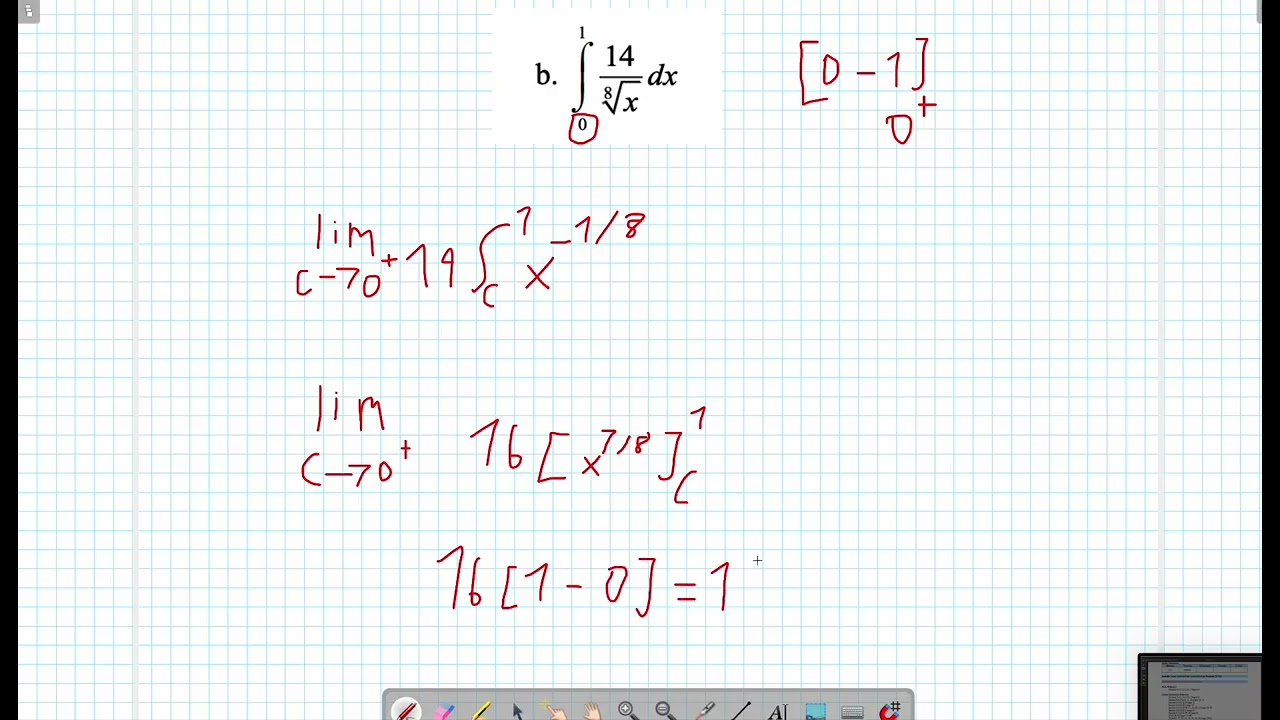 b. ∫₀¹ 14/⁸√x dx
[0 - 1]
0⁺
lim c→0⁺ 14 ∫_c^1 x^(-1/8)
lim c→0⁺ 16 [x^(7/8)]_c^1
16 [1 - 0] = 1